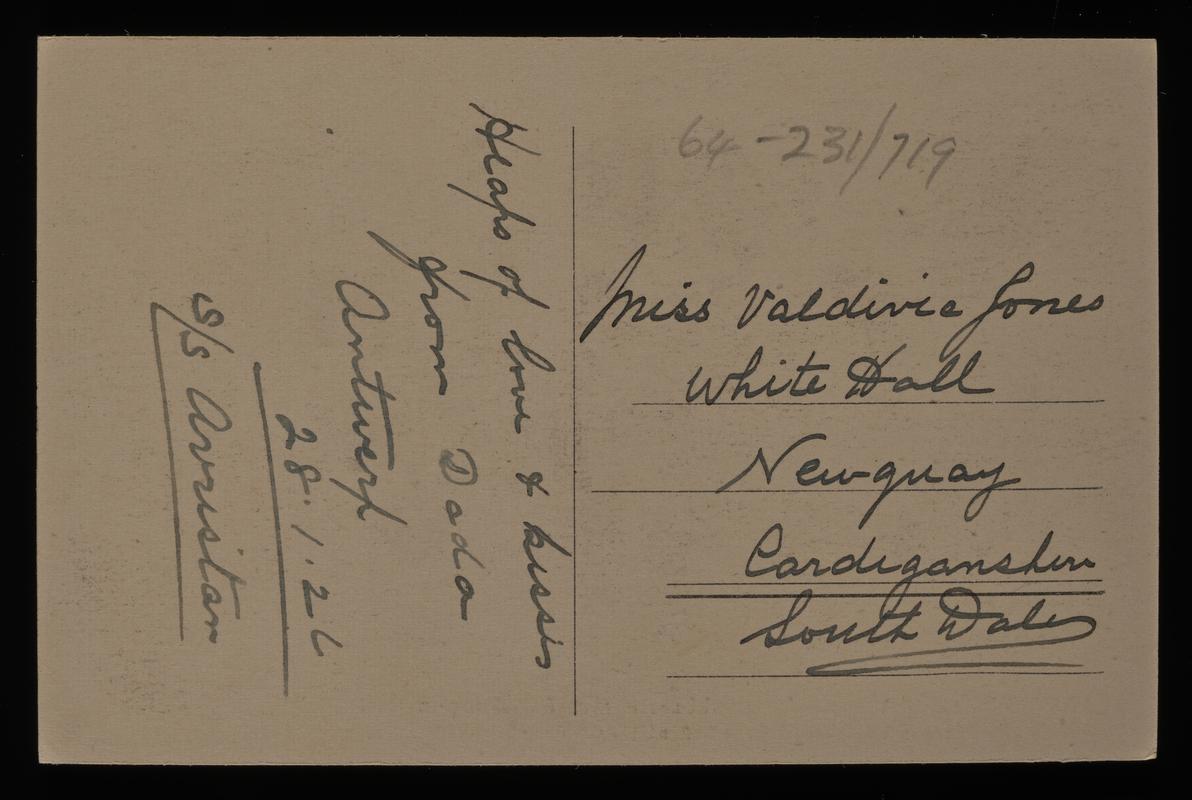 Heaps of love & kisses
from Dada
Antwerp
28.1.26
S/S Avristan
64-231/719
Miss Valdivia Jones
White Hall
Newquay
Cardiganshire
South Wales